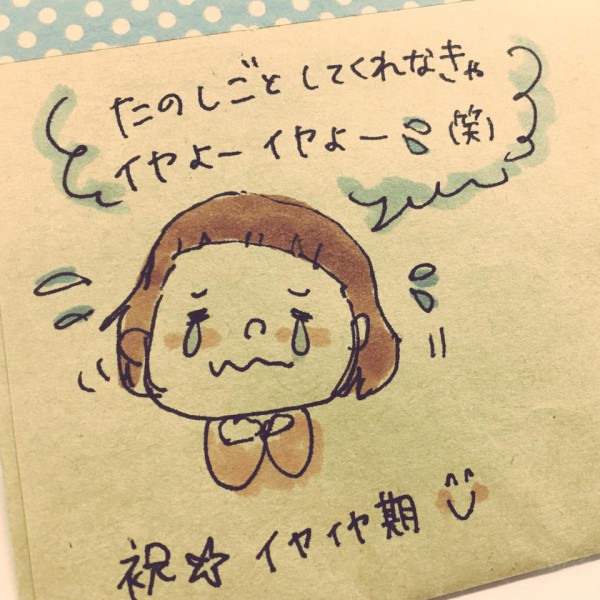 たのしごとしてくれなきゃ
イヤよーイヤよー(笑)
祝☆イヤイヤ期